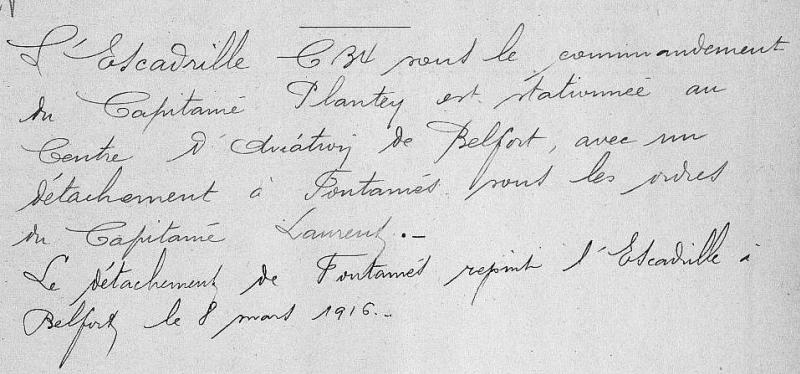 L'Escadrille C 34 sous le commandement
du Capitaine Plantey est stationnée au
Centre d'Aviation de Belfort, avec un
détachement à Fontaines sous les ordres
du Capitaine Laurent. -
Le détachement de Fontaines rejoint l'Escadrille à
Belfort le 8 mars 1916. -